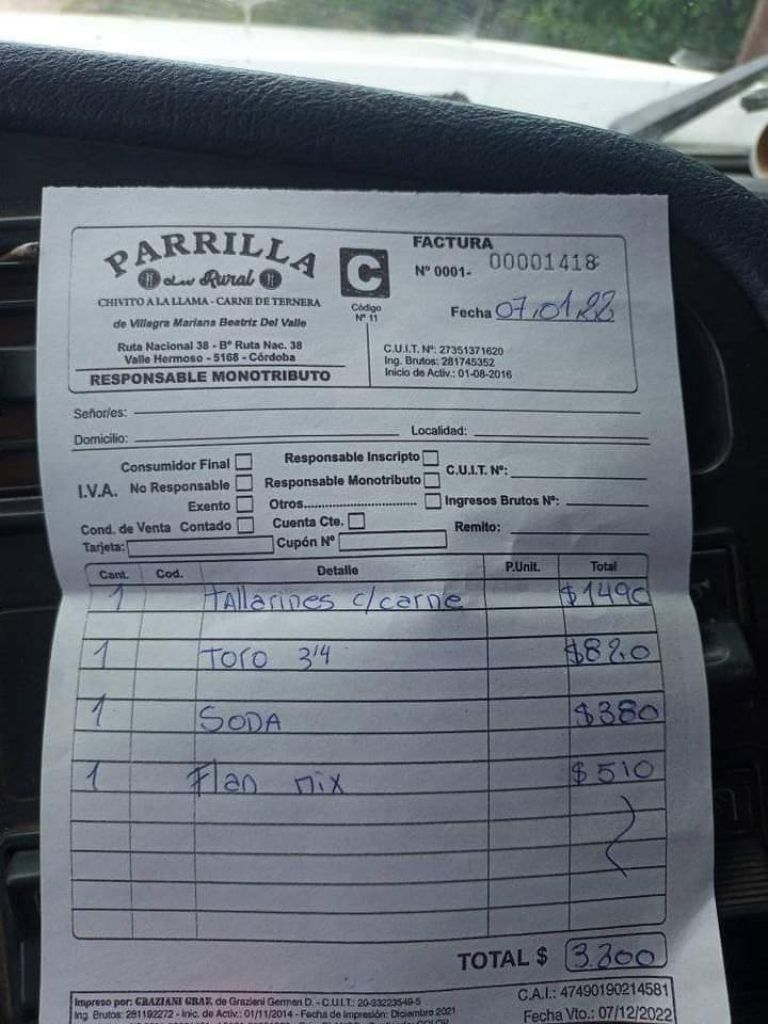 PARRILLA
Rural
CHIVITO A LA LLAMA - CARNE DE TERNERA
de Villagra Mariana Beatriz Del Valle
Ruta Nacional 38 - Bº Ruta Nac. 38
Valle Hermoso - 5168 - Córdoba
RESPONSABLE MONOTRIBUTO
C
Código
Nº 11
FACTURA
Nº 0001- 00001418
Fecha 07/01/22
C.U.I.T. Nº: 27351371620
Ing. Brutos: 281745352
Inicio de Activ.: 01-08-2016
Señor/es:
Domicilio: Localidad:
I.V.A. Consumidor Final Responsable Inscripto C.U.I.T. Nº:
No Responsable Responsable Monotributo
Exento Otros Ingresos Brutos Nº:
Cond. de Venta Contado Cuenta Cte. Remito:
Tarjeta: Cupón Nº
Cant. Cod. Detalle P.Unit. Total
1 TAllarines c/carne $1490
1 TORO 3/4 $820
1 SODA $380
1 Flan mix $510
TOTAL $ 3.200
Impreso por: GRAZIANI GRAF. de Graziani German D. - C.U.I.T.: 20-33223549-5
Ing. Brutos: 281192272 - Inic. de Activ.: 01/11/2014 - Fecha de Impresión: Diciembre 2021
C.A.I.: 47490190214581
Fecha Vto.: 07/12/2022